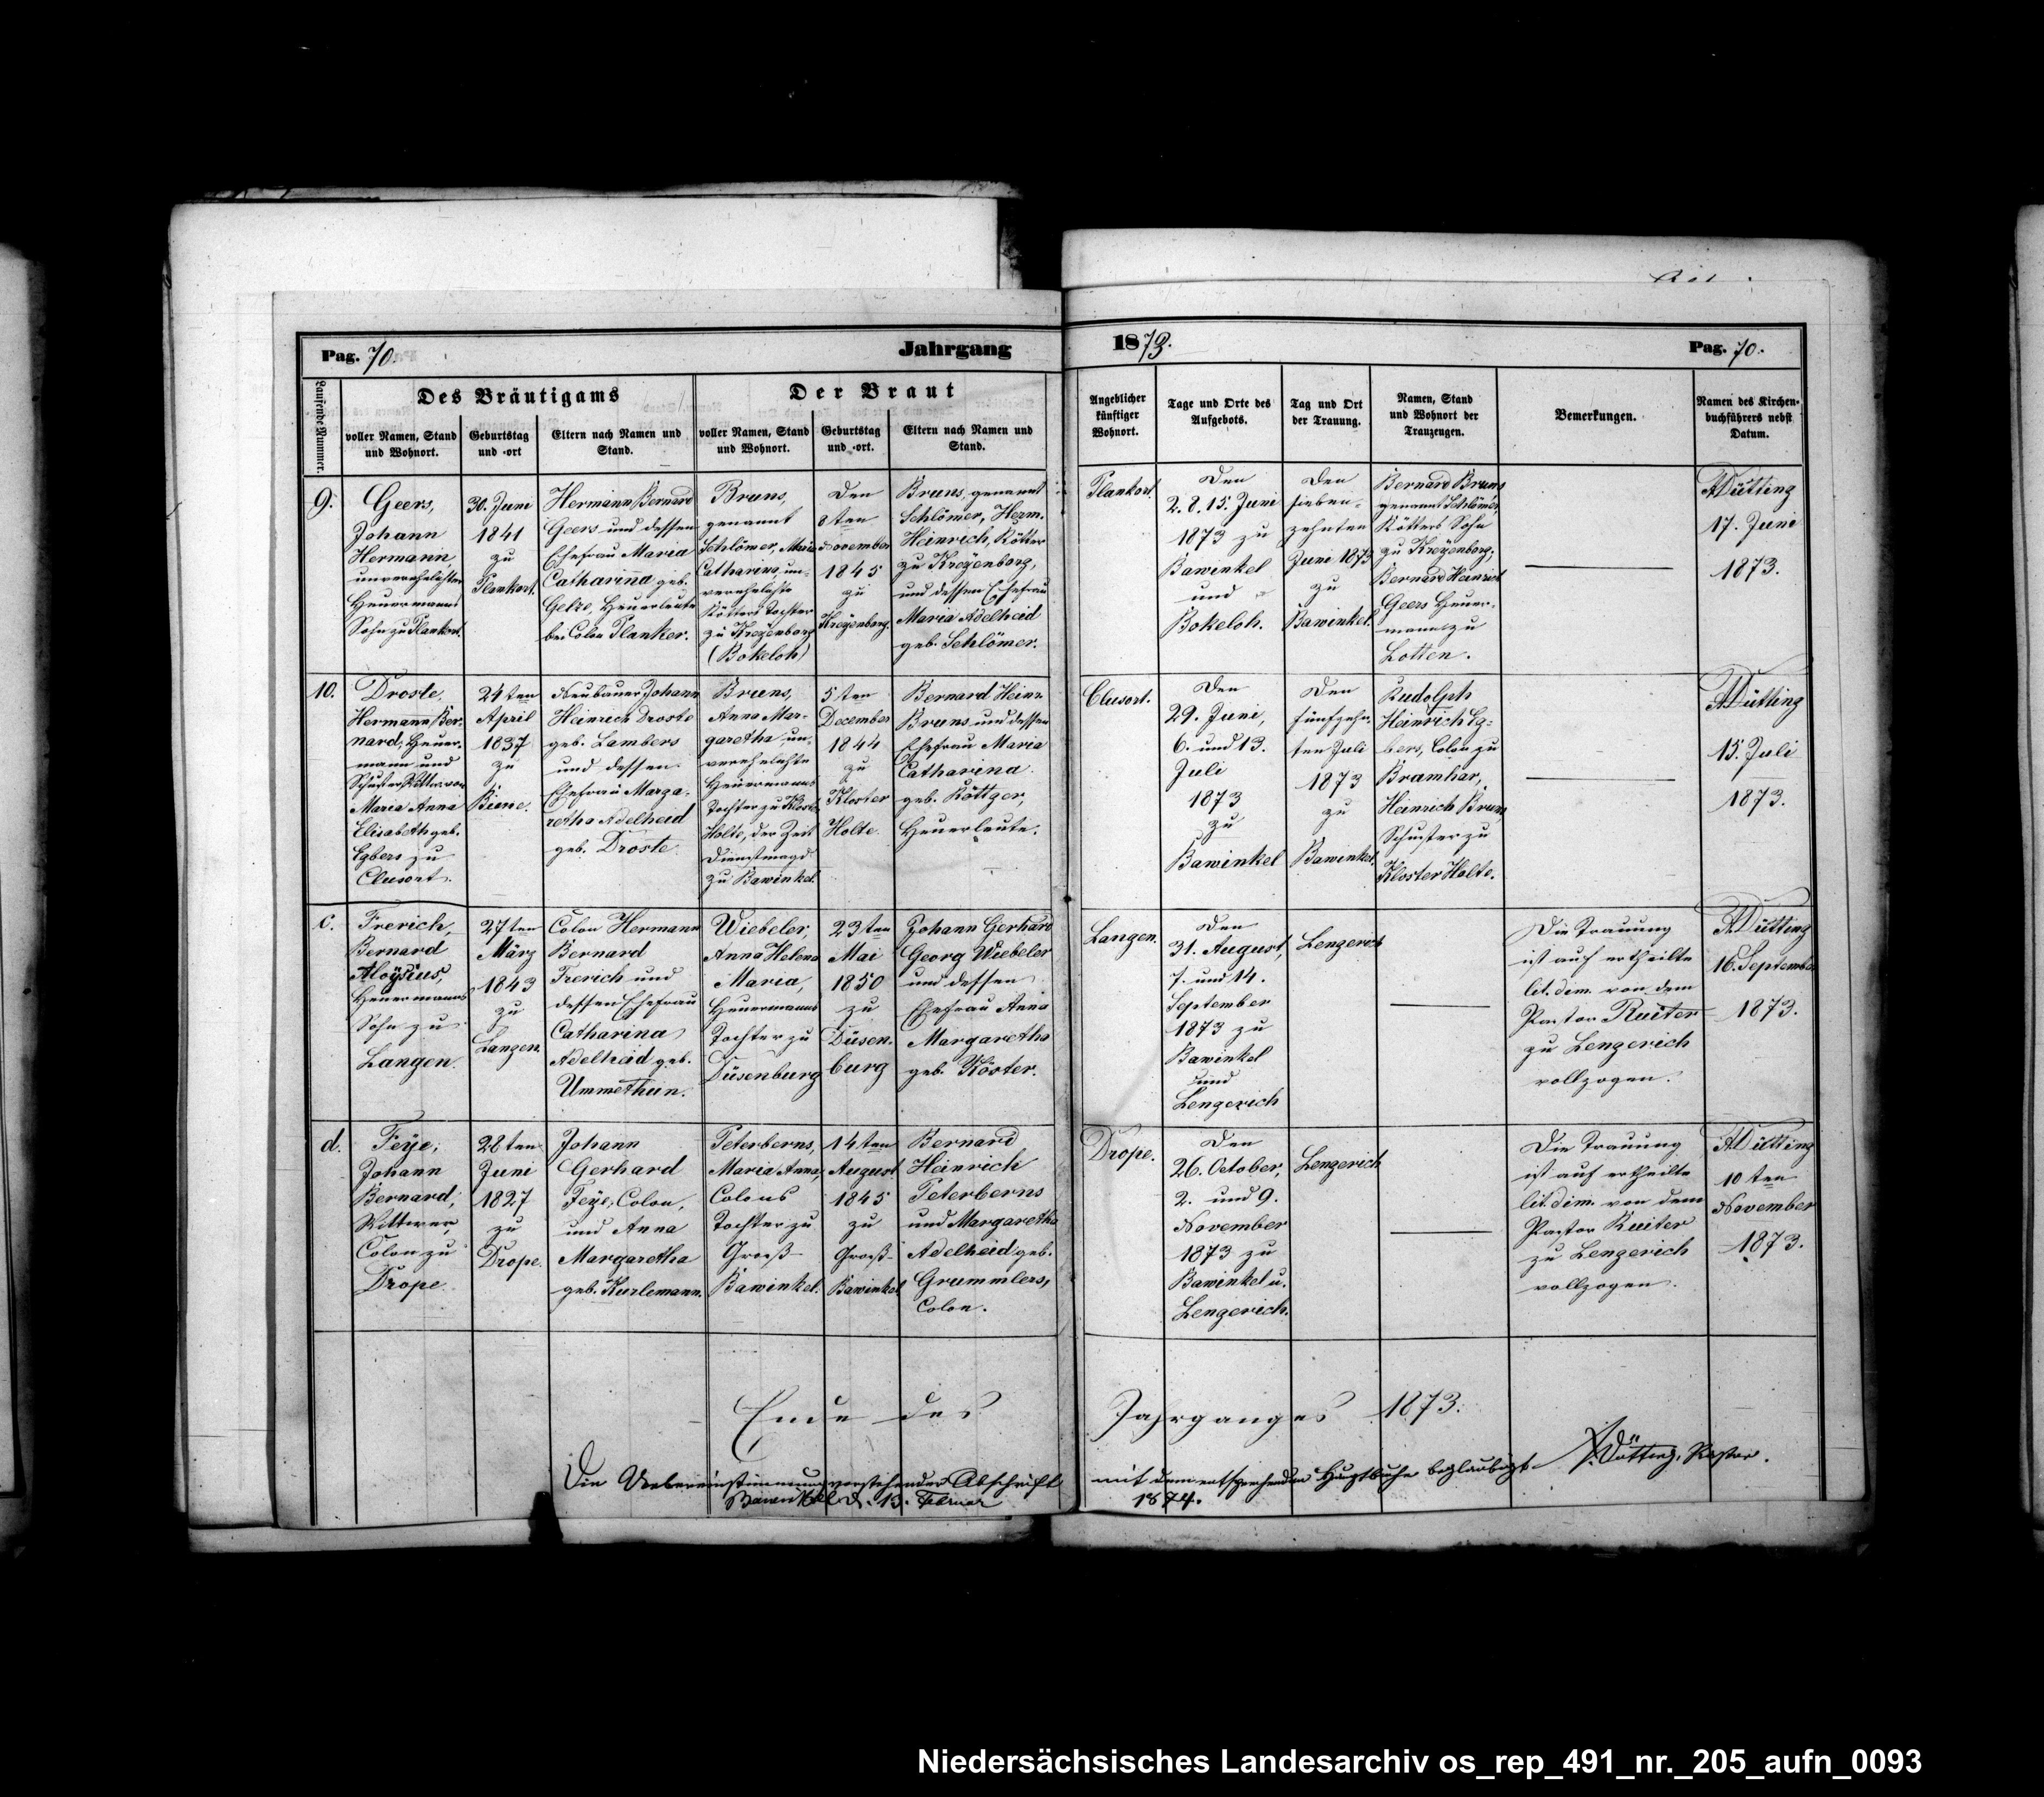 Pag. 70.
Jahrgang
1873.
Pag. 70.
Laufende Nummer.
Des Bräutigams
Der Braut
voller Namen, Stand
und Wohnort.
Geburtstag
und -ort
Eltern nach Namen und
Stand.
voller Namen, Stand
und Wohnort.
Geburtstag
und -ort.
Eltern nach Namen und
Stand.
Angeblicher
künftiger
Wohnort.
Tage und Orte des
Aufgebots.
Tag und Ort
der Trauung.
Namen, Stand
und Wohnort der
Trauzeugen.
Bemerkungen.
Namen des Kirchen-
buchführers nebst
Datum.
9.
Geers,
Johann
Hermann,
unverehelichter
Heuermanns
Sohn zu Plankort.
30. Juni
1841
zu
Plankort.
Hermann Bernard
Geers und dessen
Ehefrau Maria
Catharina geb.
Gelze, Heuerleute
bei Colon Planker.
Bruns,
genannt
Schlömer, Maria
Catharina, un-
verehelichte
Kötters Tochter
zu Kreyenborg
(Bokeloh)
Den
8ten
November
1845
zu
Kreyenborg.
Bruns, genannt
Schlömer, Herm.
Heinrich, Kötter
zu Kreyenborg,
und dessen Ehefrau
Maria Adelheid
geb. Schlömer.
Plankort.
Den
2. 8. 15. Juni
1873 zu
Bawinkel
und
Bokeloh.
Den
sieben-
zehnten
Juni 1873
zu
Bawinkel.
Bernard Bruns
genannt Schlömer,
Kötters Sohn
zu Kreyenborg;
Bernard Heinrich
Geers Heuer-
mann zu
Lotten.
ADütting
17. Juni
1873.
10.
Droste,
Hermann Ber-
nard, Heuer-
mann und
Schuster, Wittwer von
Maria Anna
Elisabeth geb.
Egbers zu
Clusort.
24ten
April
1837
zu
Biene.
Neubauer Johann
Heinrich Droste
geb. Lambers
und dessen
Ehefrau Marga-
retha Adelheid
geb. Droste.
Bruns,
Anna Mar-
garetha, un-
verehelichte
Heuermanns
Tochter zu Kloster
Holte, der Zeit
Dienstmagd
zu Bawinkel.
5ten
December
1844
zu
Kloster
Holte.
Bernard Heinr.
Bruns und dessen
Ehefrau Maria
Catharina
geb. Röttger,
Heuerleute.
Clusort.
Den
29. Juni,
6. und 13.
Juli
1873
zu
Bawinkel
Den
fünfzehn-
ten Juli
1873
zu
Bawinkel.
Rudolph
Heinrich Eg-
bers, Colon zu
Bramhar,
Heinrich Bruns
Schuster zu
Kloster Holte.
ADütting
15. Juli
1873.
c.
Frerich,
Bernard
Aloysius,
Heuermanns
Sohn zu
Langen.
27ten
März
1843
zu
Langen.
Colon Hermann
Bernard
Frerich und
dessen Ehefrau
Catharina
Adelheid geb.
Ummethun.
Wiebeler,
Anna Helena
Maria,
Heuermanns
Tochter zu
Düsenburg
23ten
Mai
1850
zu
Düsen-
burg
Johann Gerhard
Georg Wiebeler
und dessen
Ehefrau Anna
Margaretha
geb. Köster.
Langen.
Den
31. August,
7. und 14.
September
1873 zu
Bawinkel
und
Lengerich
Lengerich
Die Trauung
ist auf ertheilte
lit. dim. von dem
Pastor Ruiter
zu Lengerich
vollzogen.
ADütting
16. September
1873.
d.
Feye,
Johann
Bernard,
Wittwer,
Colon zu
Drope
28ten
Juni
1827
zu
Drope.
Johann
Gerhard
Feye, Colon,
und Anna
Margaretha
geb. Kurlemann.
Peterberns,
Maria Anna,
Colons
Tochter zu
Groß-
Bawinkel.
14ten
August
1845
zu
Groß-
Bawinkel
Bernard
Heinrich
Peterberns
und Margaretha
Adelheid geb.
Grummlers,
Colon.
Drope.
Den
26. October,
2. und 9.
November
1873 zu
Bawinkel u.
Lengerich.
Lengerich
Die Trauung
ist auf ertheilte
lit. dim. von dem
Pastor Ruiter
zu Lengerich
vollzogen.
ADütting
10ten
November
1873.
Ende des Jahrganges 1873.
Die Uebereinstimmung vorstehender Abschrift mit dem entsprechenden Hauptbuche beglaubigt ADütting, Pastor.
Bawinkel d. 13. Februar 1874.
Niedersächsisches Landesarchiv os_rep_491_nr._205_aufn_0093